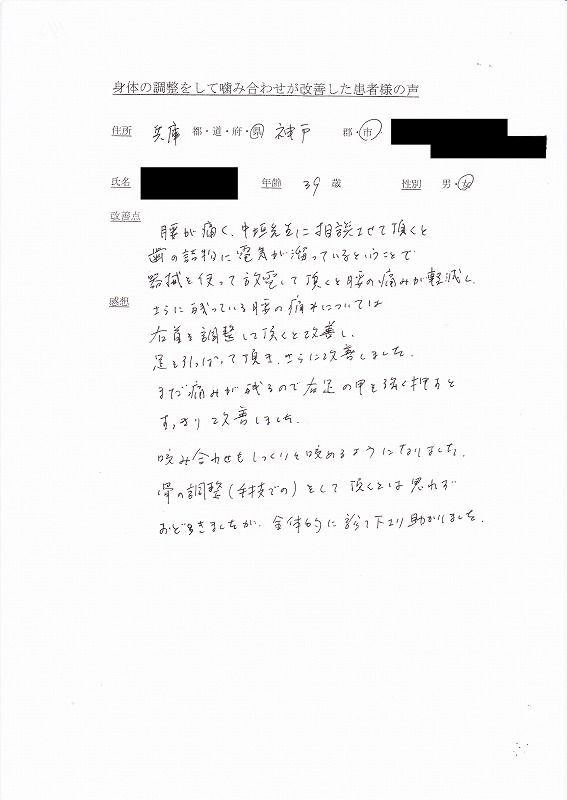 身体の調整をして噛み合わせが改善した患者様の声
住所 兵庫 都・道・府・県 神戸 郡・市
氏名 年齢 39 歳 性別 男・女
改善点
腰が痛く、中垣先生に相談させて頂くと
歯の詰物に電気が溜っているということで
器械を使って放電して頂くと腰の痛みが軽減し、
感想 さらに残っている腰の痛みについては
右首を調整して頂くと改善し、
足を引っぱって頂き、さらに改善しました。
まだ痛みが残るので右足の甲を強く押すと
すっきり改善しました。
咬み合わせもしっくりと咬めるようになりました。
骨の調整(手技での)をして頂くとは思わず
おどろきましたが、全体的に診て下さり助かりました。